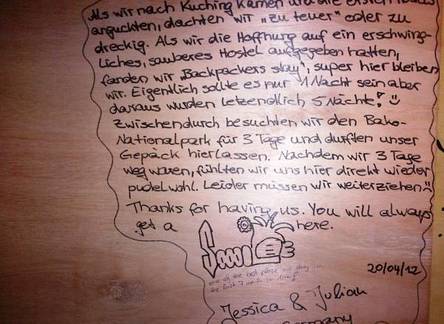 Als wir nach Kuching kamen und die ersten
anguckten, dachten wir „zu teuer" oder zu
dreckig. Als wir die Hoffnung auf ein erschwing-
liches, sauberes Hostel aufgegeben hatten,
fanden wir „Backpackers stay", super hier blieben
wir. Eigentlich sollte es nur 1 Nacht sein aber
daraus wurden letzendlich 5 Nächte!
Zwischendurch besuchten wir den Bako-
Nationalpark für 3 Tage und durften unser
Gepäck hierlassen. Nachdem wir 3 Tage
weg waren, fühlten wir uns hier direkt wieder
pudelwohl. Leider müssen wir weiterziehen.
Thanks for having us. You will always
get a here.
20/04/12
Jessica & Julian
Germany